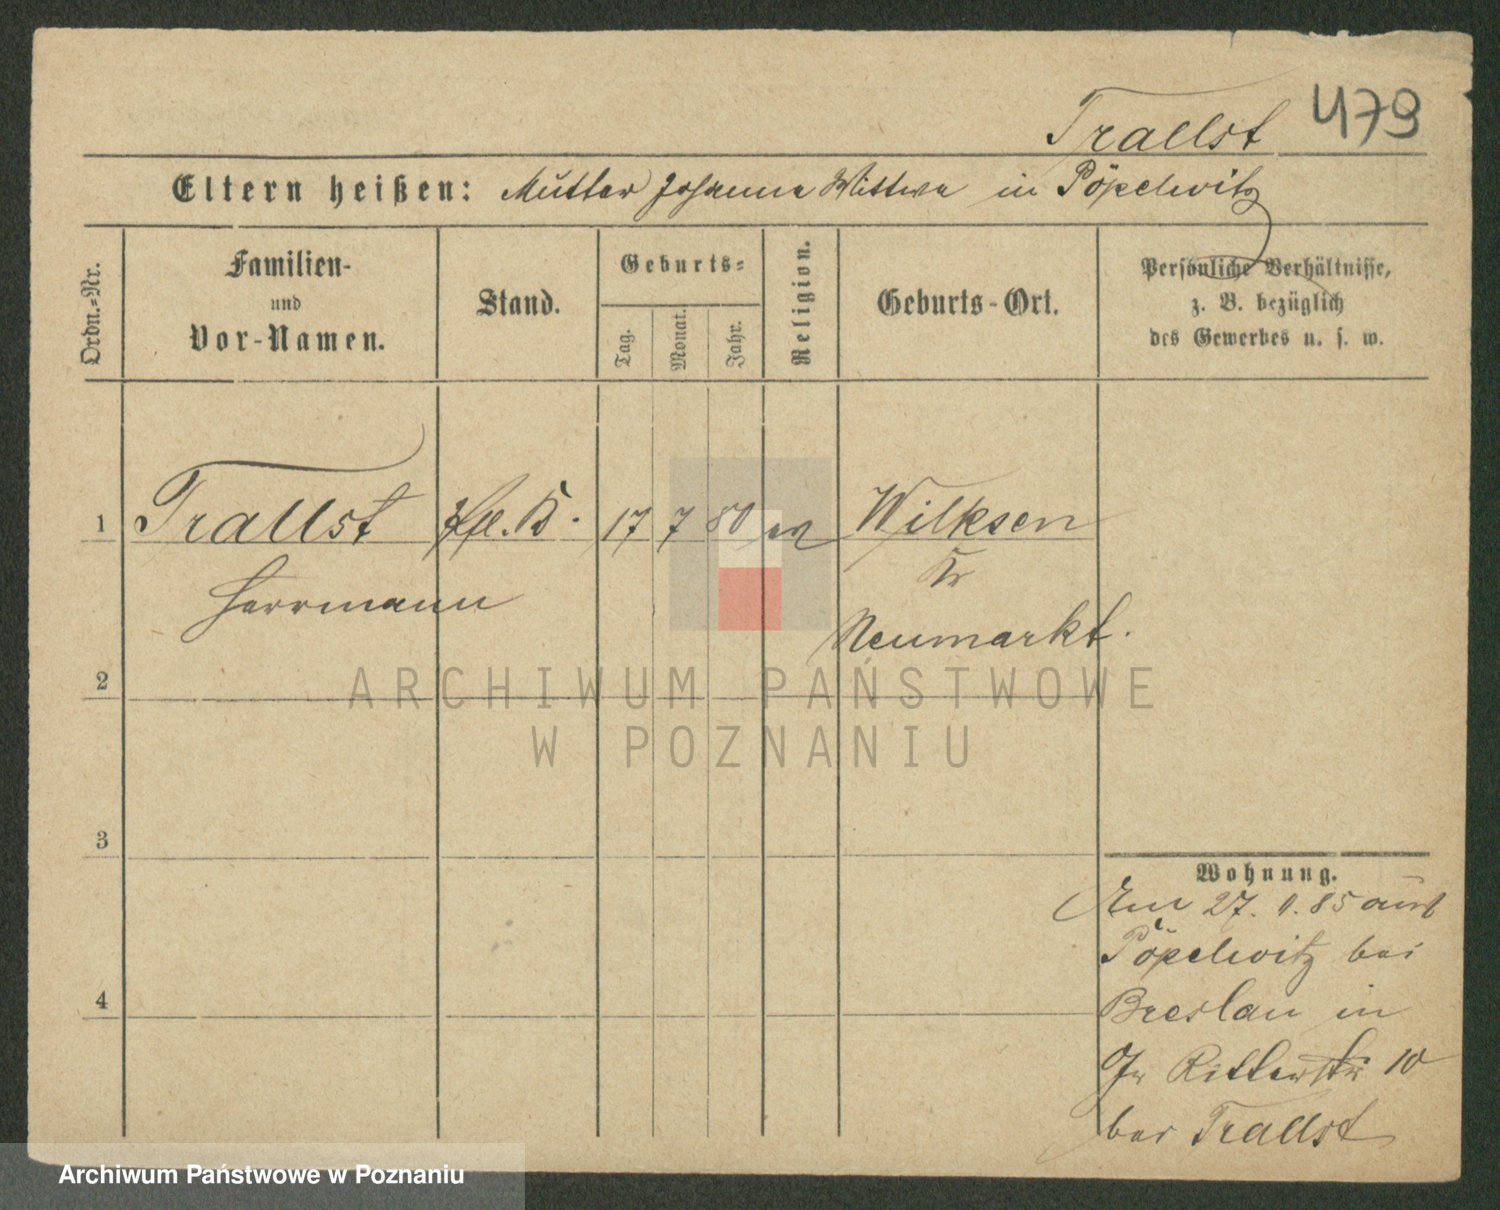 Trallst 479
Eltern heißen: Mutter Johanna Wittwe in Pöpelwitz
Ordn.=Nr.
Familien-
und
Vor-Namen.
Stand.
Geburts=
Tag.
Monat.
Jahr.
Religion.
Geburts-Ort.
Persönliche Verhältnisse,
z. B. bezüglich
des Gewerbes u. s. w.
1 Trallst 17 7 80 Wilksen
Herrmann Kr
Neumarkt.
2
ARCHIWUM PAŃSTWOWE
W POZNANIU
3
Wohnung.
Am 27. 85 aus
Pöpelwitz bei
4 Breslau in
Ritterstr 10
bei Trallst
Archiwum Państwowe w Poznaniu